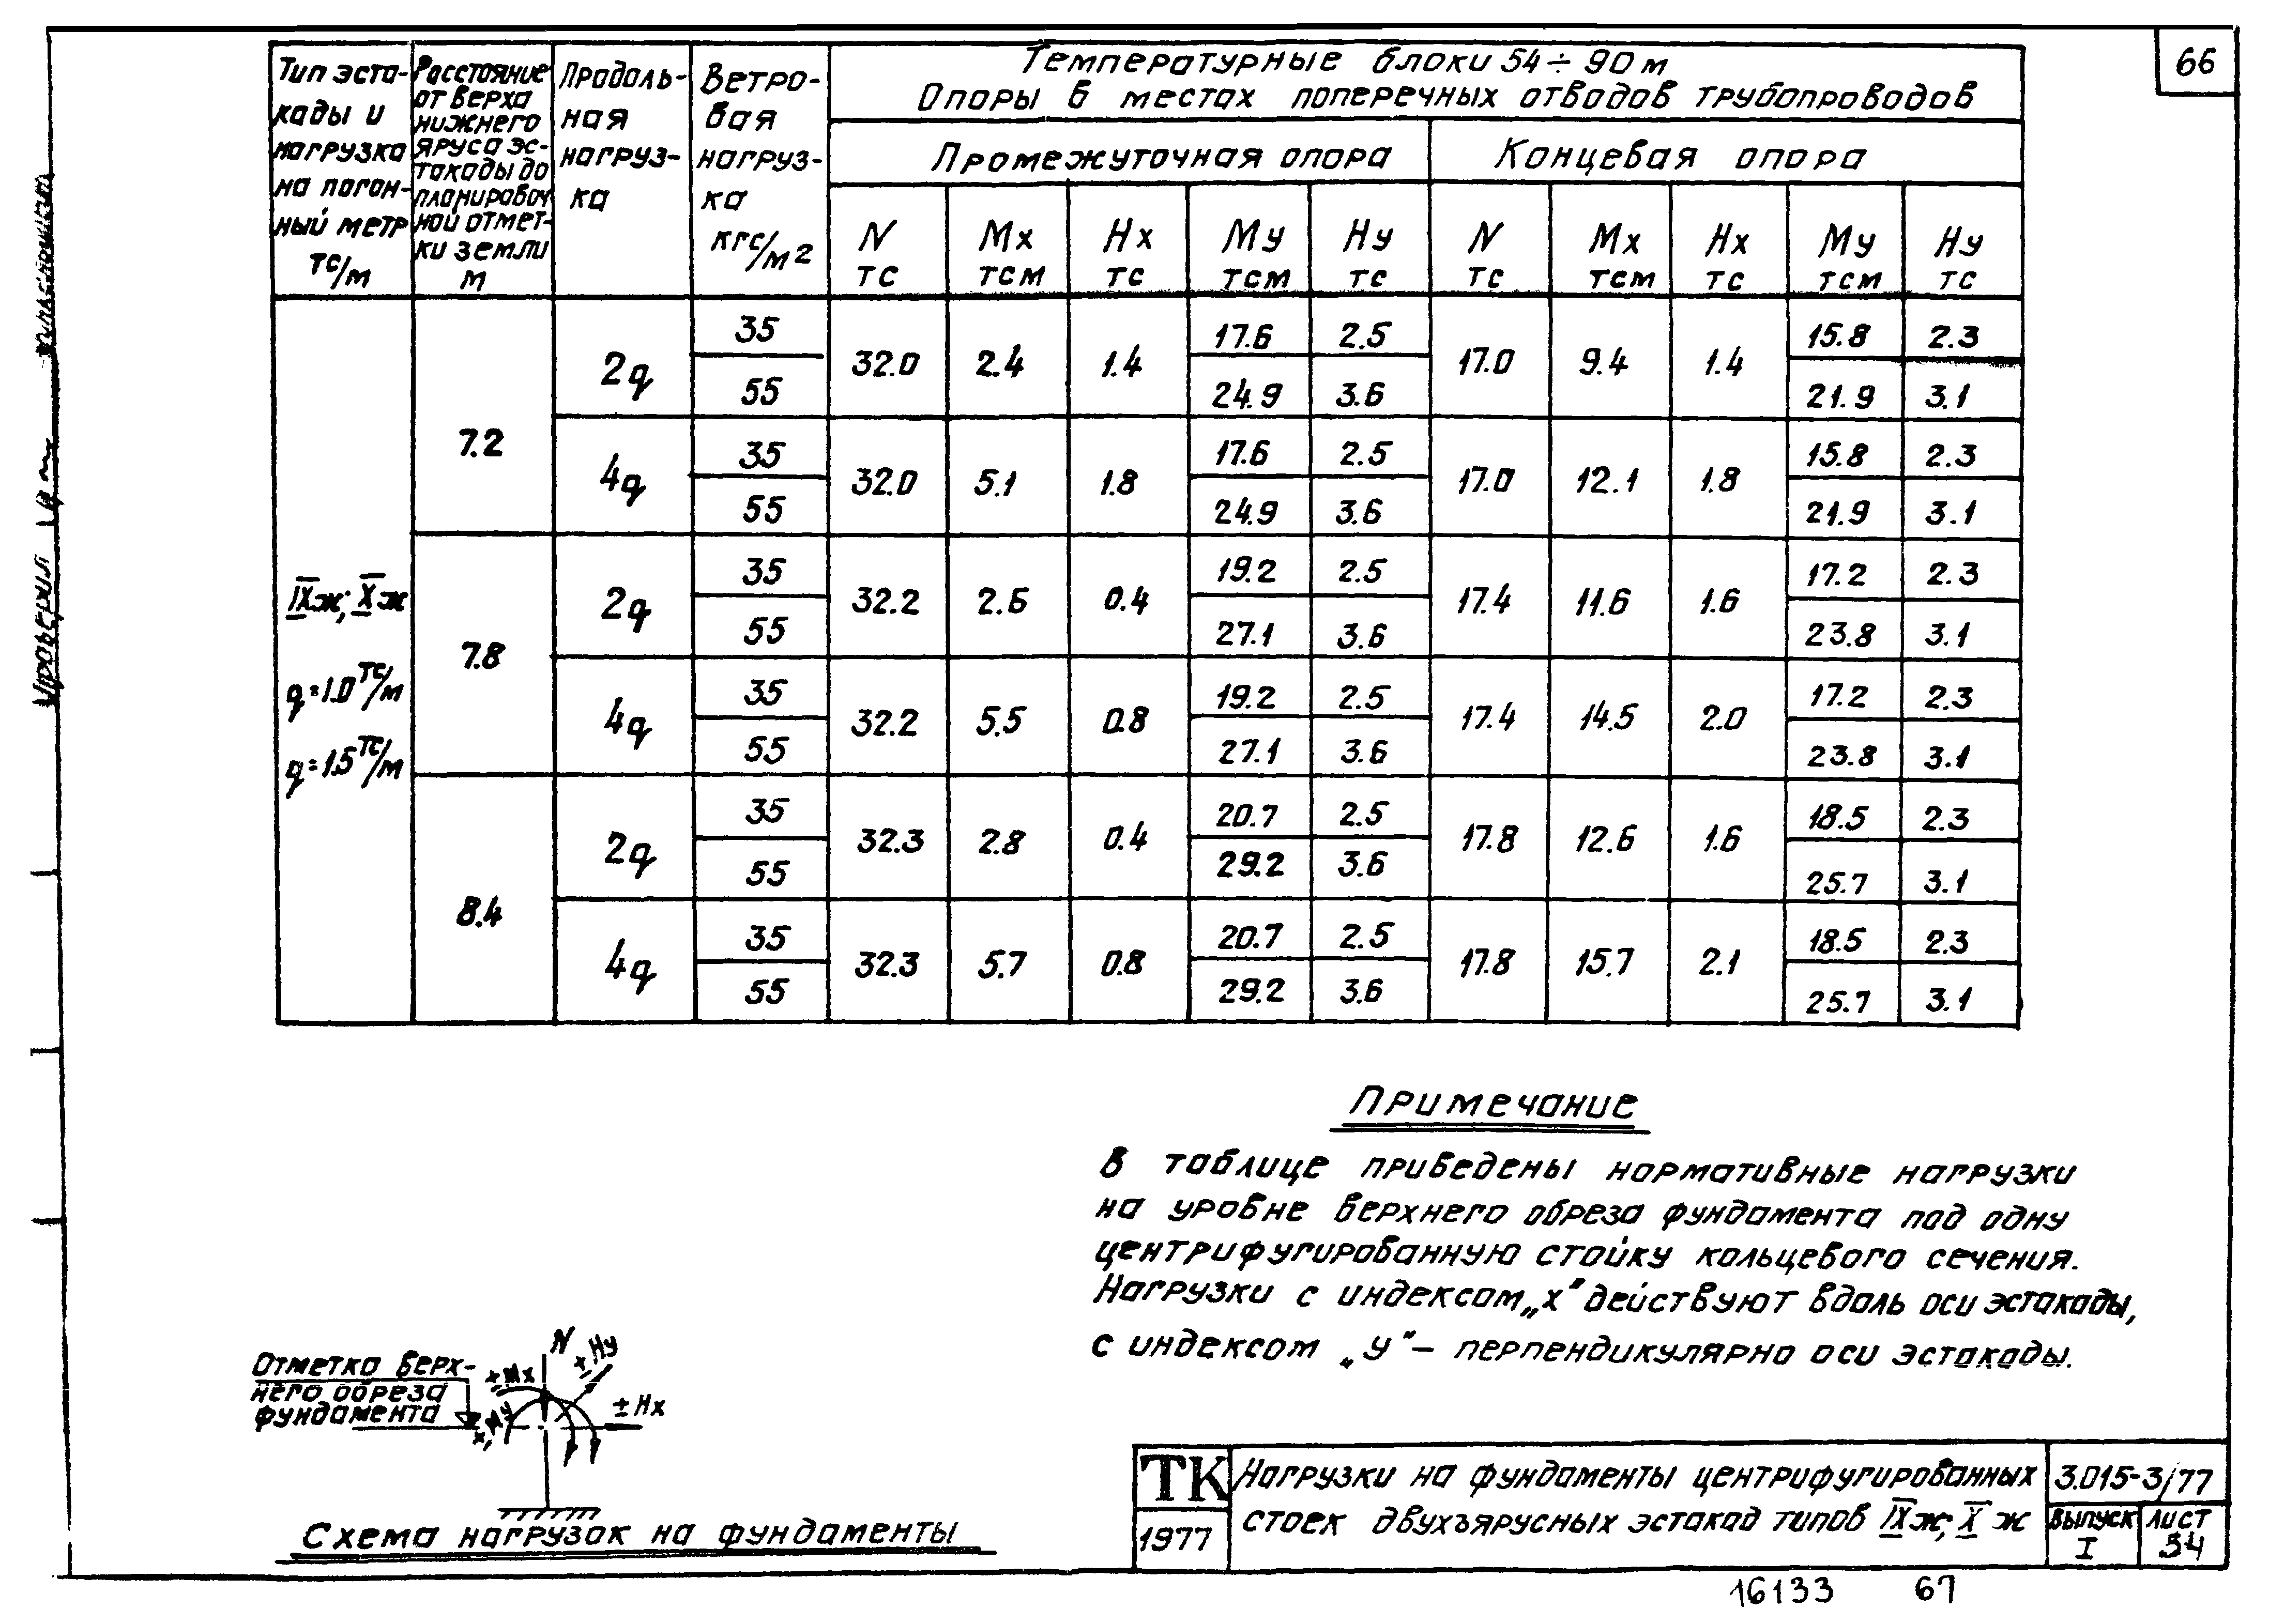 66
Тип эста-
кады и
нагрузка
на погон-
ный метр
тс/м
Расстояние
от верха
нижнего
яруса эс-
такады до
планировоч
ной отмет-
ки земли
м
Продоль-
ная
нагруз-
ка
Ветро-
вая
нагруз-
ка
кгс/м2
Температурные блоки 54÷90м
Опоры в местах поперечных отводов трубопроводов
Промежуточная опора Концевая опора
N Mx Hx My Hy N Mx Hx My Hy
тс тсм тс тсм тс тс тсм тс тсм тс
IXж; Xж
q=1.0 тс/м
q=1.5 тс/м
7.2
2q 35 32.0 2.4 1.4 17.6 2.5 17.0 9.4 1.4 15.8 2.3
55 24.9 3.6 21.9 3.1
4q 35 32.0 5.1 1.8 17.6 2.5 17.0 12.1 1.8 15.8 2.3
55 24.9 3.6 21.9 3.1
7.8
2q 35 32.2 2.6 0.4 19.2 2.5 17.4 11.6 1.6 17.2 2.3
55 27.1 3.6 23.8 3.1
4q 35 32.2 5.5 0.8 19.2 2.5 17.4 14.5 2.0 17.2 2.3
55 27.1 3.6 23.8 3.1
8.4
2q 35 32.3 2.8 0.4 20.7 2.5 17.8 12.6 1.6 18.5 2.3
55 29.2 3.6 25.7 3.1
4q 35 32.3 5.7 0.8 20.7 2.5 17.8 15.7 2.1 18.5 2.3
55 29.2 3.6 25.7 3.1
Примечание
В таблице приведены нормативные нагрузки
на уровне верхнего обреза фундамента под одну
центрифугированную стойку кольцевого сечения.
Нагрузки с индексом „х" действуют вдоль оси эстакады,
с индексом „у" – перпендикулярно оси эстакады.
Отметка верх-
него обреза
фундамента
N
±Hy
±Mx
±Hx
Схема нагрузок на фундаменты
ТК
1977
Нагрузки на фундаменты центрифугированных
стоек двухъярусных эстакад типов IXж; Xж
3.015-3/77
Выпуск
I
Лист
34
16133 67
Проверил